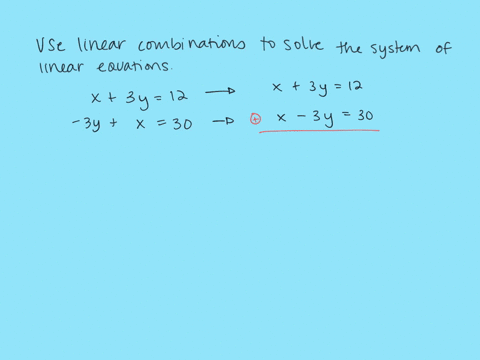 Use linear combinations to solve the system of
linear equations.
x + 3y = 12 → x + 3y = 12
-3y + x = 30 → ⊕ x - 3y = 30